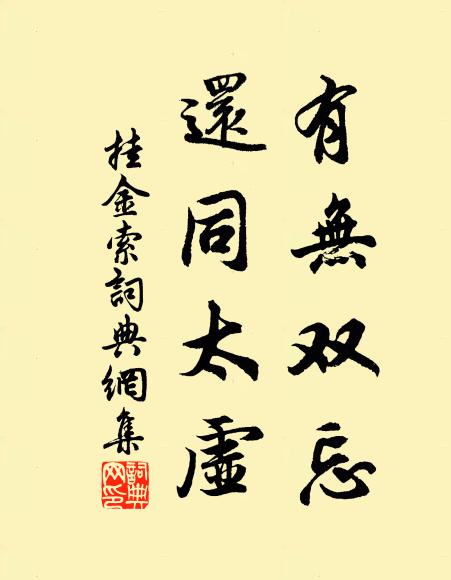 有無双忘
還同太虛
挂金索詞典網集
詞典
网印